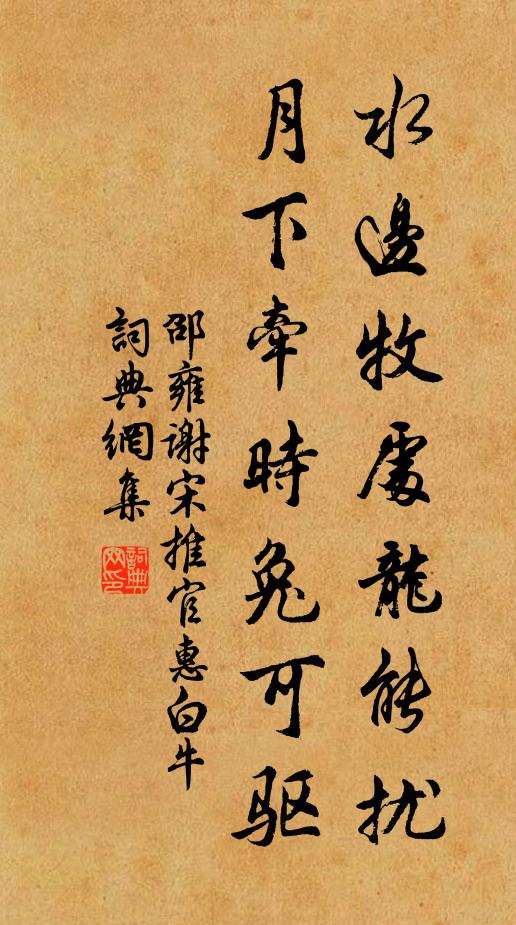 水邊牧處龍能扰
月下牽時兔可驱
邵雍謝宋推官惠白牛
詞典網集
詞典
网印